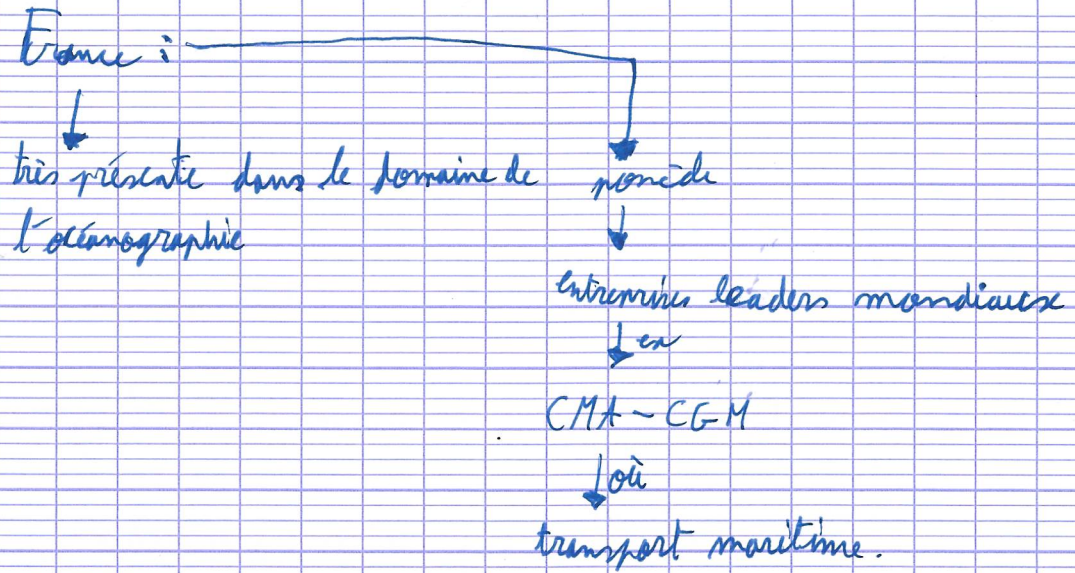 France :
très présente dans le domaine de
l'océanographie
possède
entreprises leaders mondiaux
ex
CMA-CGM
où
transport maritime.